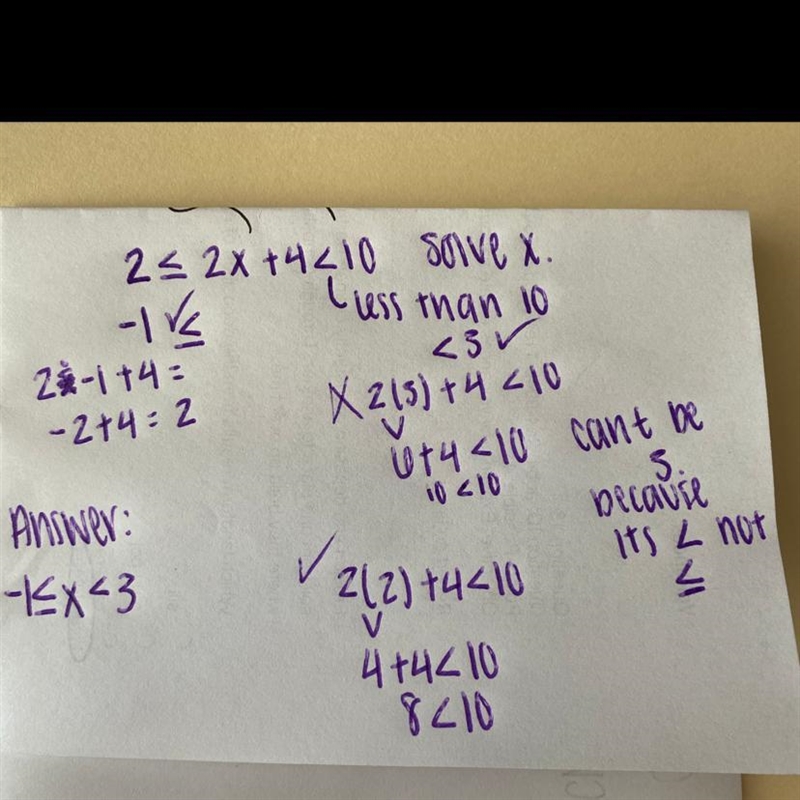 2 ≤ 2x + 4 < 10 solve x.
less than 10
-1 ✓ ≤
< 3 ✓
2 -1 + 4 =
-2 + 4 = 2
X 2(3) + 4 < 10
6 + 4 < 10
10 < 10
cant be
3
because
its < not
≤
Answer:
-1 ≤ x < 3
✓ 2(2) + 4 < 10
4 + 4 < 10
8 < 10